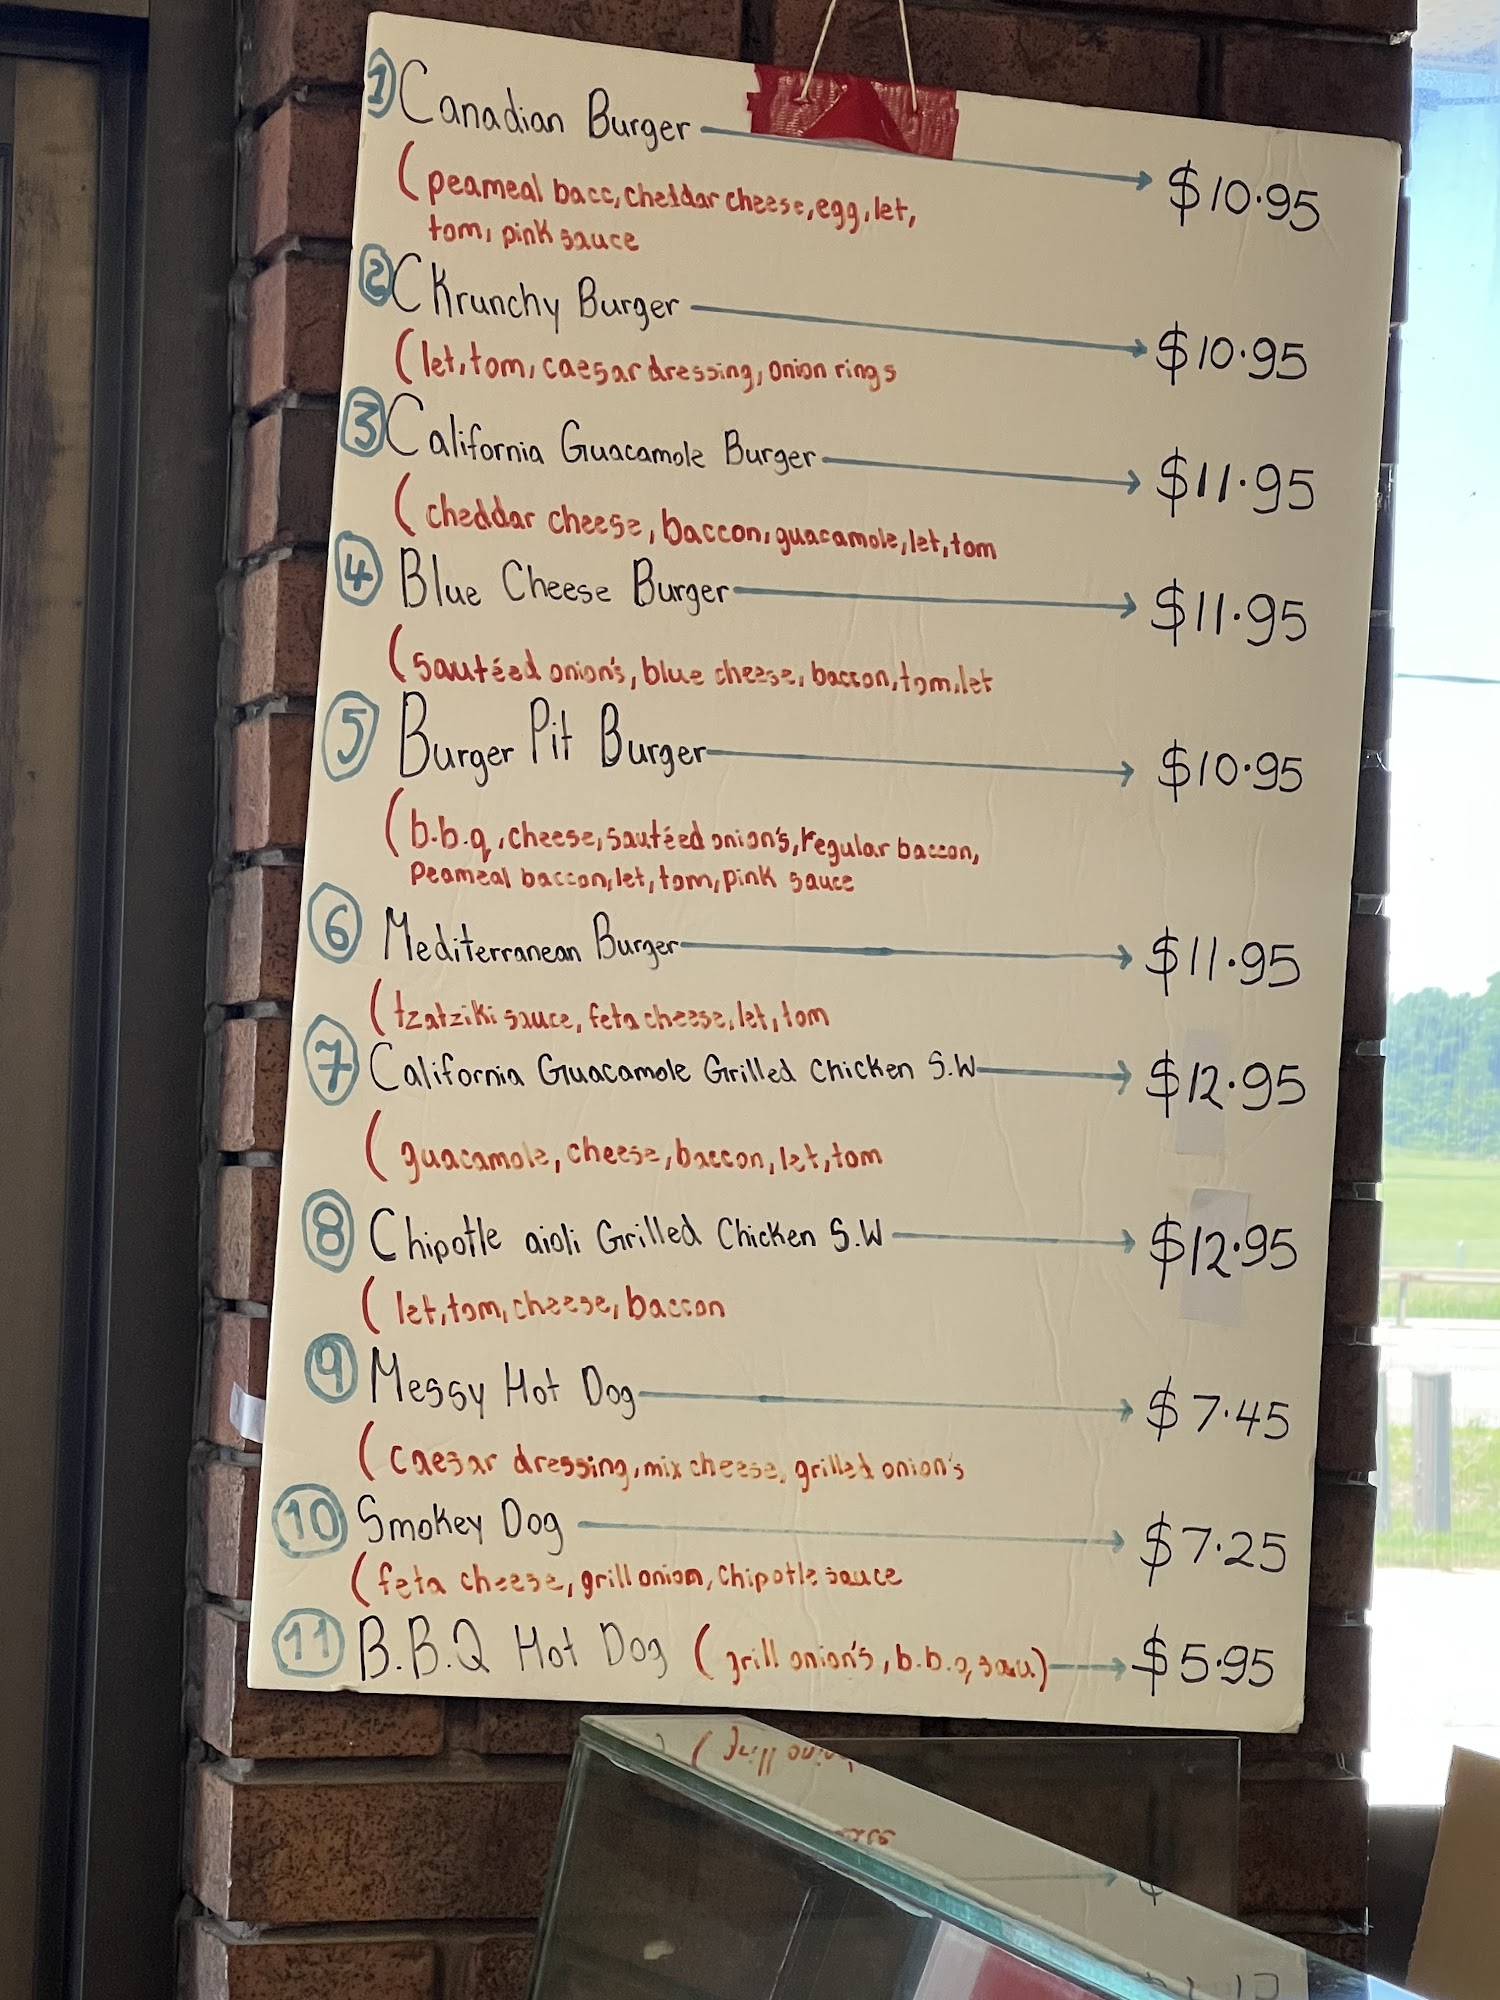 1 Canadian Burger → $10.95
(peameal bacc, cheddar cheese, egg, let,
tom, pink sauce
2 CKrunchy Burger → $10.95
(let, tom, caesar dressing, onion rings
3 California Guacamole Burger → $11.95
(cheddar cheese, baccon, guacamole, let, tom
4 Blue Cheese Burger → $11.95
(sautéed onion's, blue cheese, baccon, tom, let
5 Burger Pit Burger → $10.95
(b.b.q, cheese, sautéed onion's, regular baccon,
Peameal baccon, let, tom, pink sauce
6 Mediterranean Burger → $11.95
(tzatziki sauce, feta cheese, let, tom
7 California Guacamole Grilled Chicken S.W → $12.95
(guacamole, cheese, baccon, let, tom
8 Chipotle aioli Grilled Chicken S.W → $12.95
(let, tom, cheese, baccon
9 Messy Hot Dog → $7.45
(caesar dressing, mix cheese, grilled onion's
10 Smokey Dog → $7.25
(feta cheese, grill onion, Chipotle sauce
11 B.B.Q Hot Dog (grill onion's, b.b.q, sau.) → $5.95